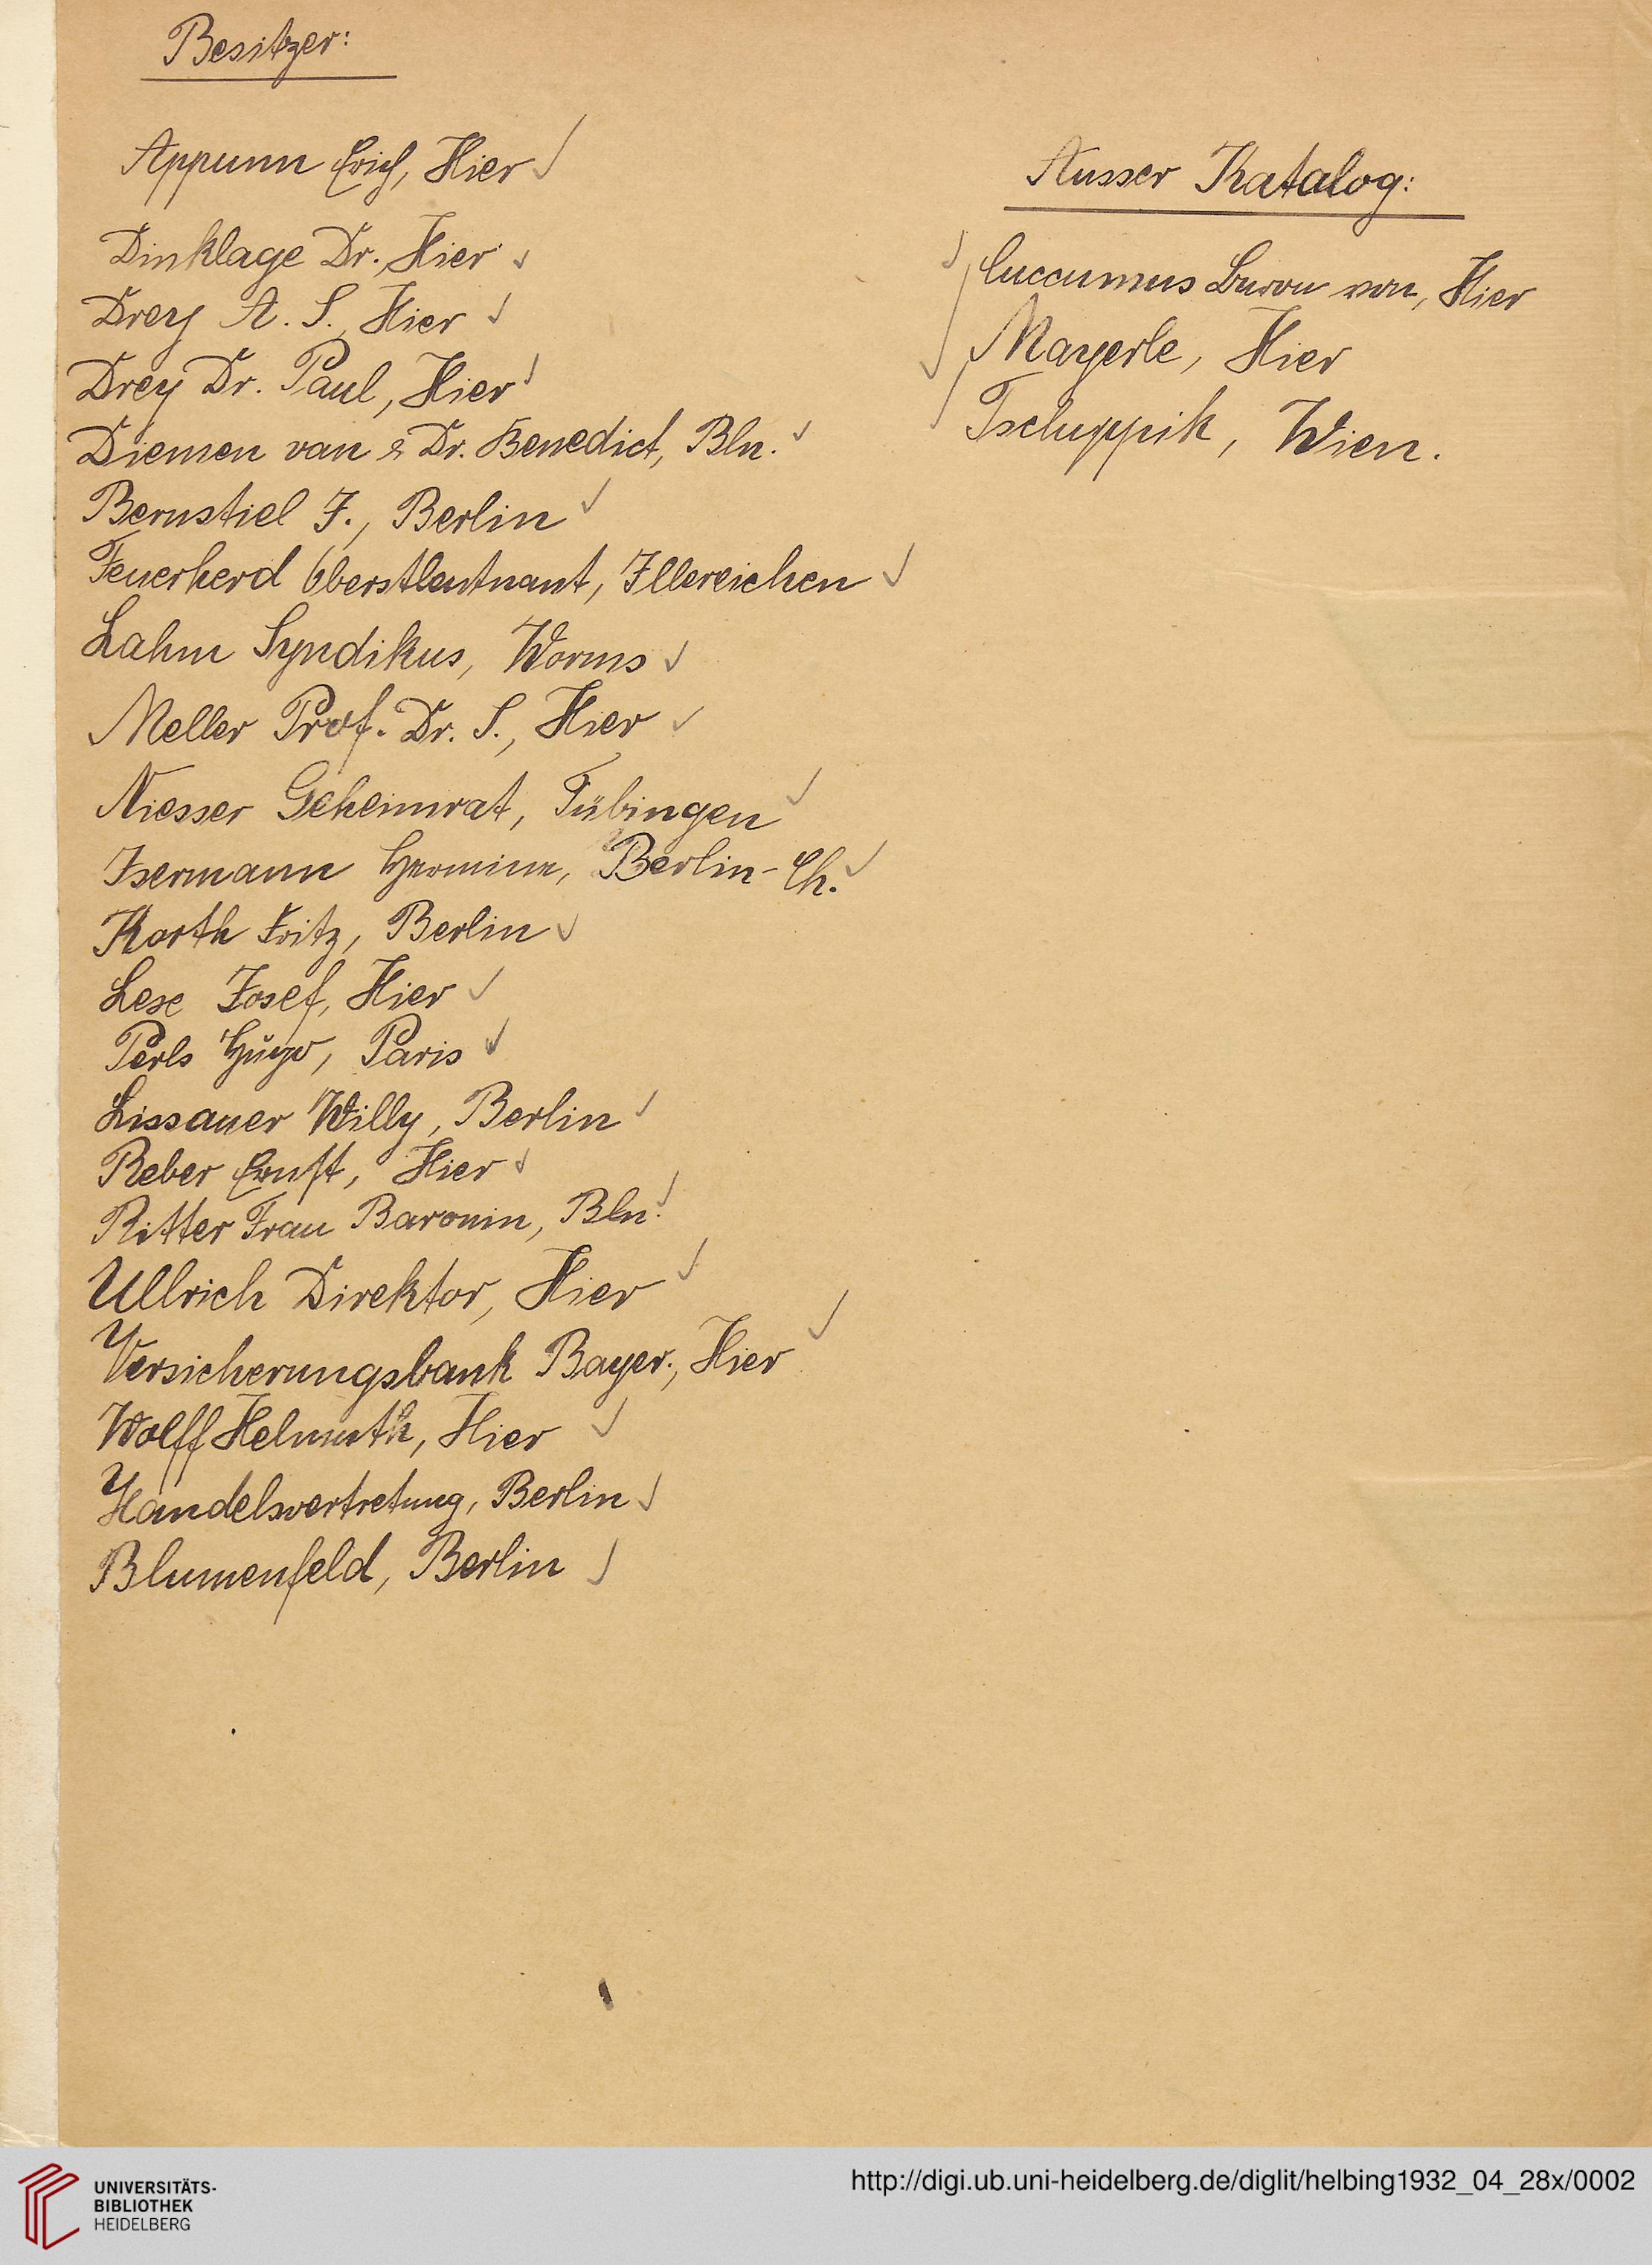 Besitzer:
Appunn Erich, Hier ✓
Dinklage Dr. Hier ✓
Drey A. S., Hier ✓
Drey Dr. Paul, Hier ✓
Diemen van & Dr. Benedict, Bln. ✓
Bernstiel J., Berlin ✓
Feuerherd Oberstleutnant, Illereichen ✓
Lahm Syndikus, Worms ✓
Meller Prof. Dr. S., Hier ✓
Niesser Geheimrat, Tübingen ✓
Isermann Hermine, Berlin-Ch. ✓
Korth Fritz, Berlin ✓
Lese Josef, Hier ✓
Perls Hugo, Paris ✓
Lissauer Willy, Berlin ✓
Reber Ernst, Hier ✓
Ritter Frau Baronin, Bln. ✓
Ullrich Direktor, Hier ✓
Versicherungsbank Bayer., Hier ✓
Wolff Helmuth, Hier ✓
Handelsvertretung, Berlin ✓
Blumenfeld, Berlin ✓
Ausser Katalog:
✓ Cuccumus Baron von, Hier
✓ Mayerle, Hier
Tschuppik, Wien.
UNIVERSITÄTS-
BIBLIOTHEK
HEIDELBERG
http://digi.ub.uni-heidelberg.de/diglit/helbing1932_04_28x/0002